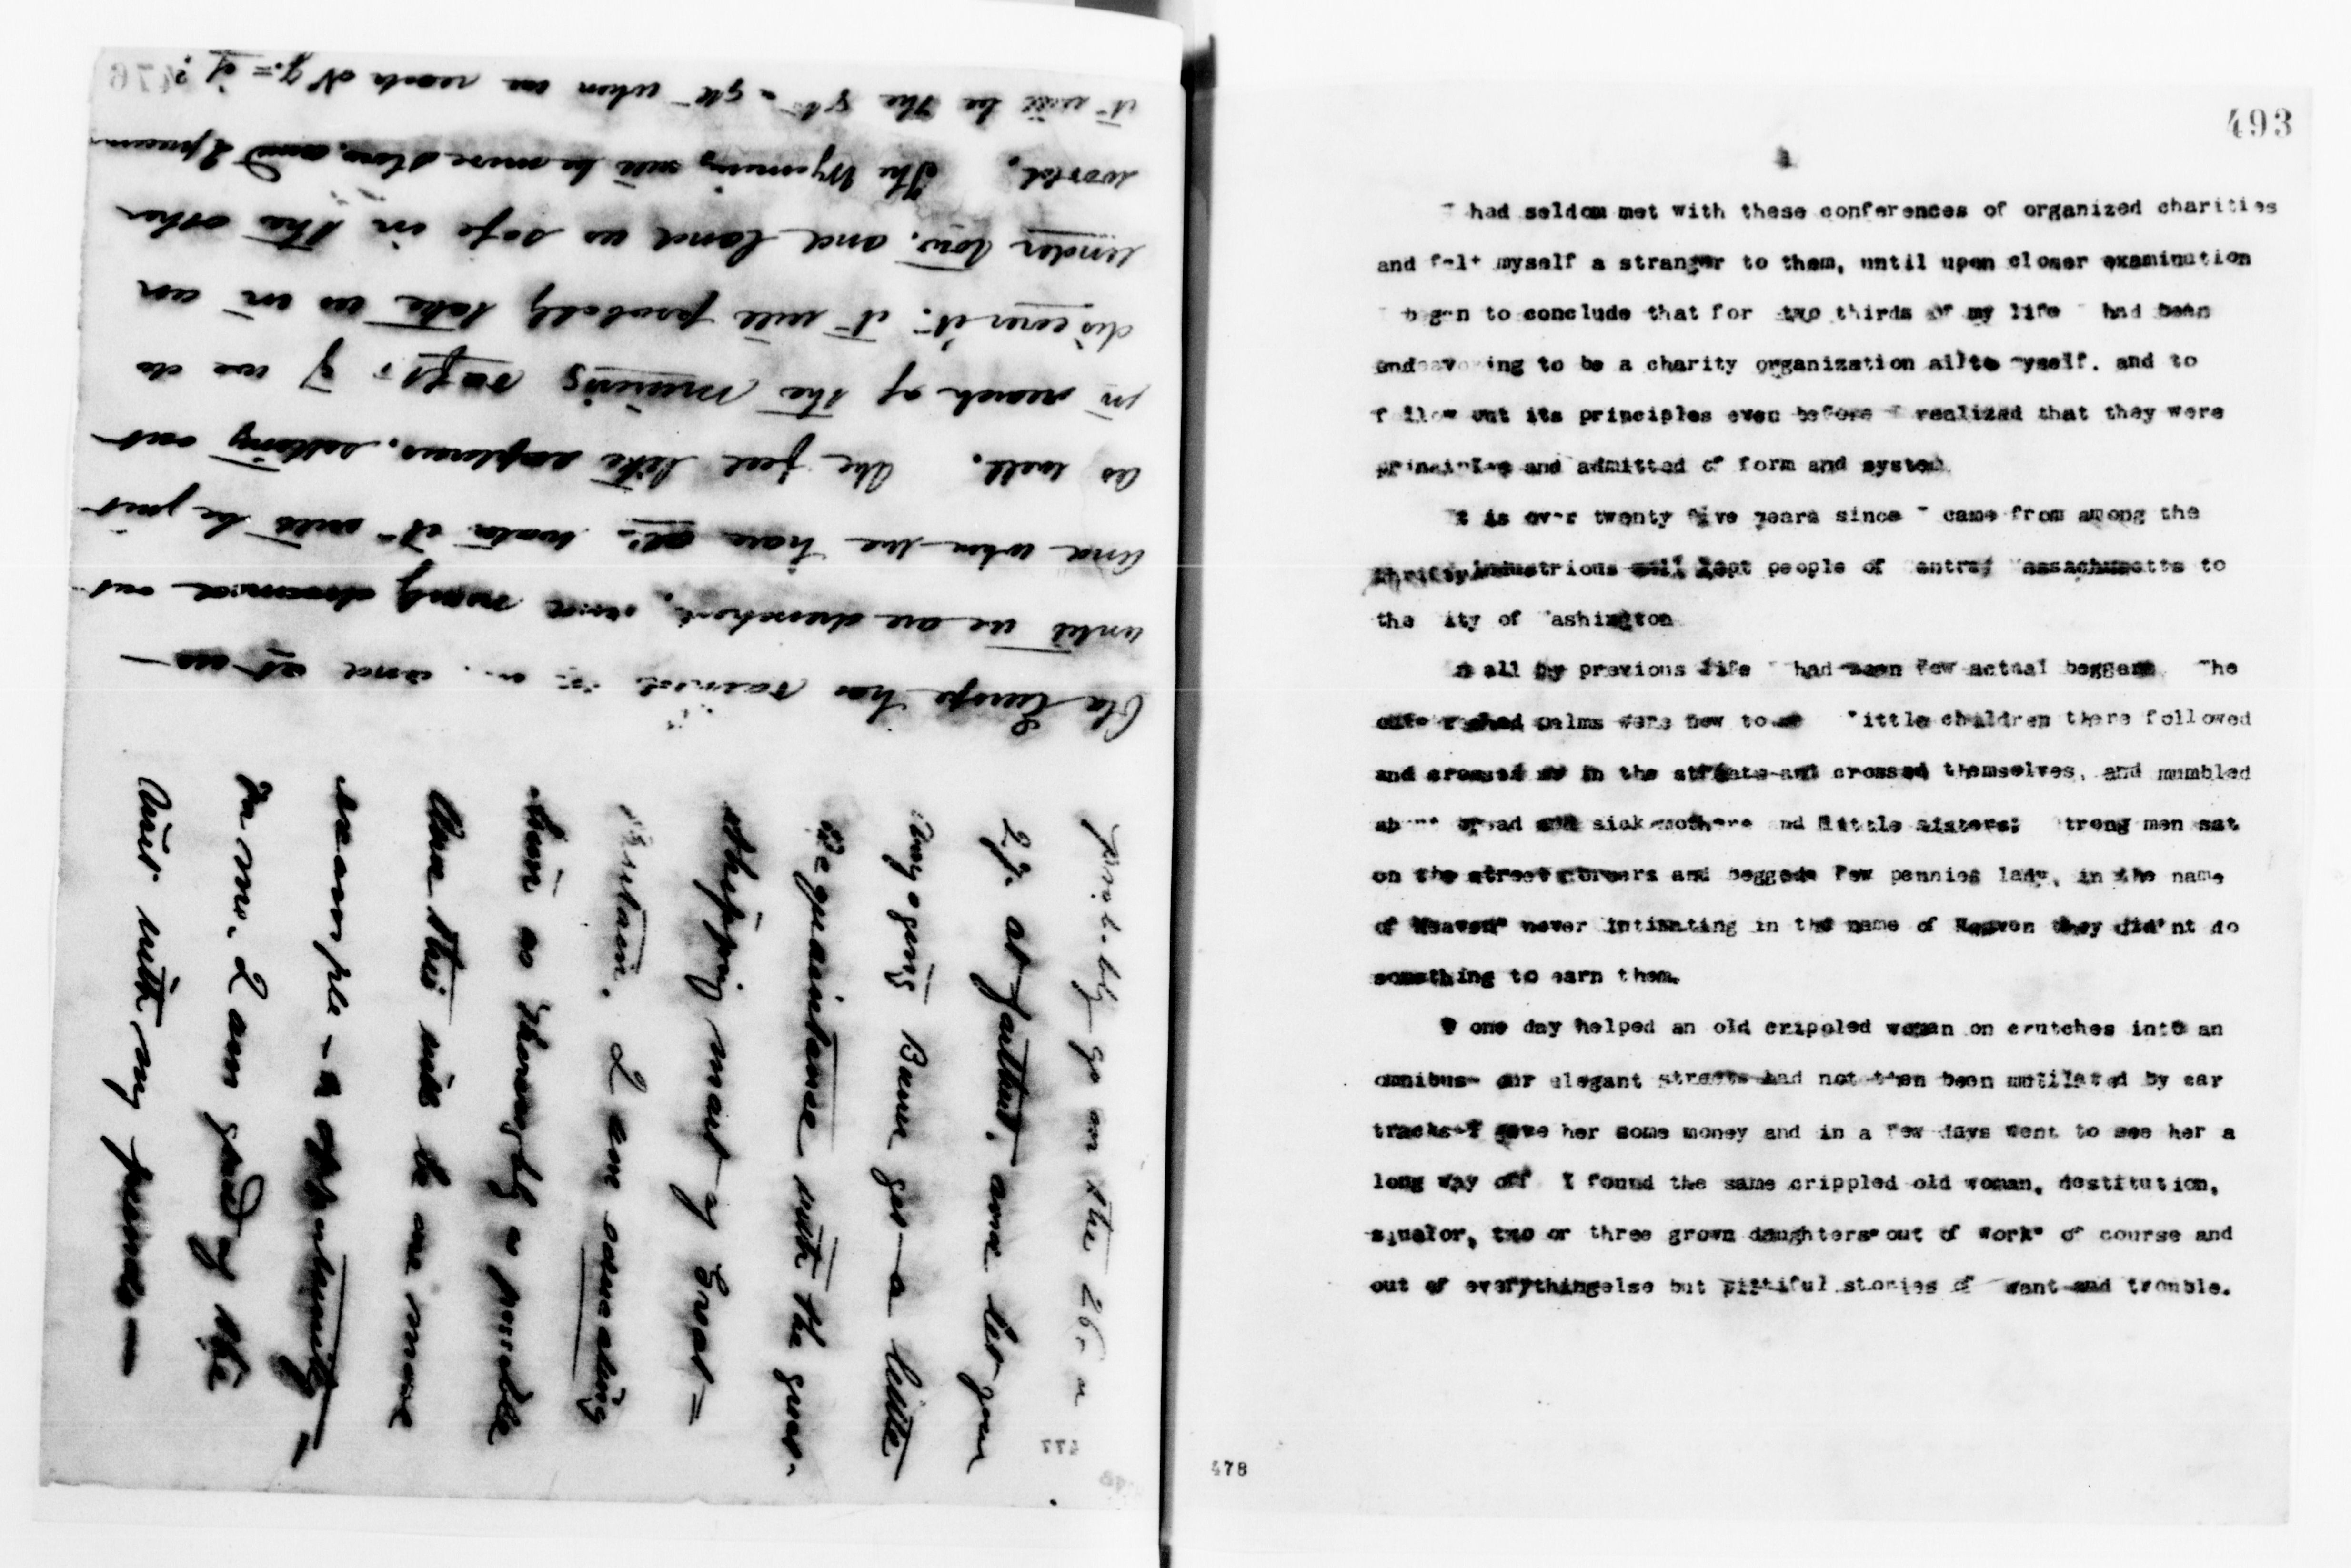 Old Europe has rained and at us —
until we are drenched, and nearly drowned out
and when we have all water it will be just
as well. We feel like explorers, setting out
in search of the missing raft; if we do
discover it, it will probably take us in an
under tow, and land us safe in the other
world. The Wyoming will be more slow, and I presume
it will be the 8th when we reach N Y. = if?
probably go on the 26
27. at furthest, and let your
get a little
acquaintance with the great
shipping mart of Great =
I am
him as thoroughly as possible
this will be one more
example - opportunity —
for me. I am glad of the
with my friends —
477
493
had seldom met with these conferences of organized charities
and felt myself a stranger to them, until upon closer examination
began to conclude that for two thirds of my life had been
endeavoring to be a charity organization all to myself. and to
follow out its principles even before I realized that they were
principles and admitted of form and system
It is over twenty five years since I came from among the
thrifty industrious well kept people of entral assachusetts to
the ity of ashington
In all my previous life had seen few actual beggars The
outstretched palms were new to me ittle children there followed
and crossed me in the streets and crossed themselves, and mumbled
about bread and sick mothers and little sisters; trong men sat
on the street corners and begged few pennies lady, in the name
of Heaven" never intimating in the name of Heaven they did'nt do
something to earn them.
I one day helped an old crippled woman on crutches into an
omnibus- our elegant streets had not then been mutilated by car
tracks-I gave her some money and in a few days went to see her a
long way off I found the same crippled old woman, destitution,
squalor, two or three grown daughters"out of work" of course and
out of everythingelse but pittiful stories of want and trouble.
478